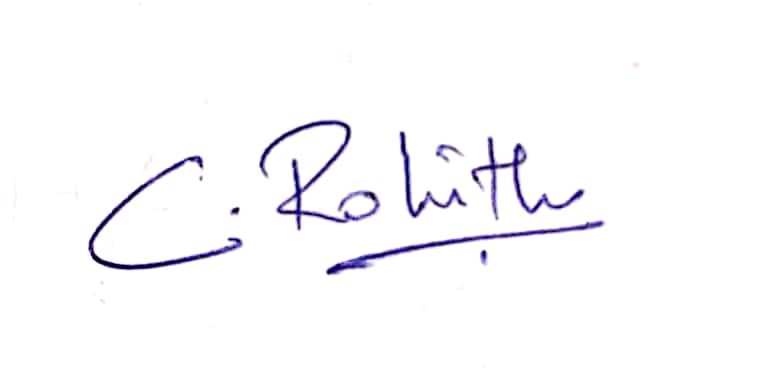 C. Rohith